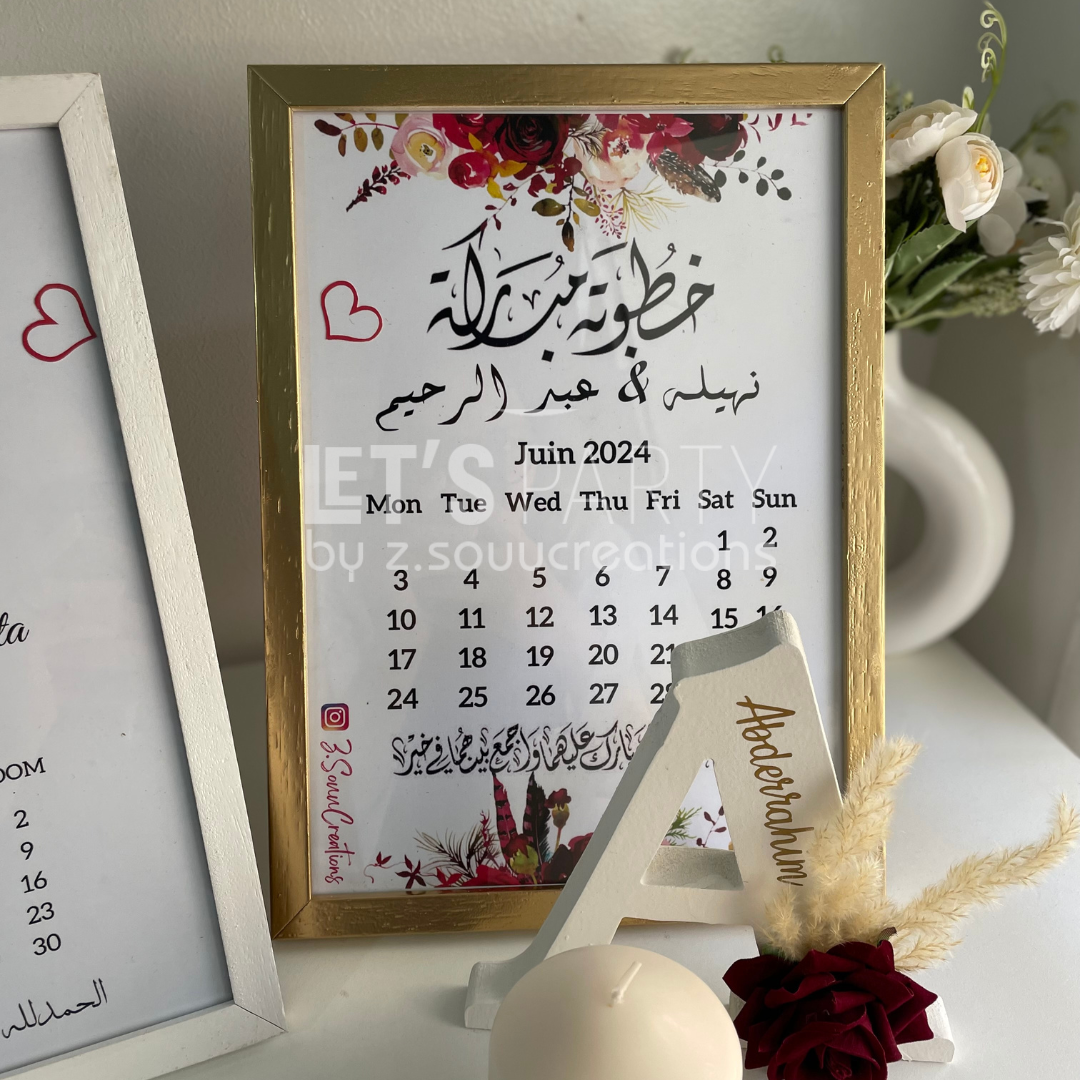 خطوبة مباركة
نهيله & عبد الرحيم
Juin 2024
LET'S PARTY
by z.souucreations
Mon Tue Wed Thu Fri Sat Sun
1 2
3 4 5 6 7 8 9
10 11 12 13 14 15 16
17 18 19 20 21
24 25 26 27 28
بارك عليهما واجمع بينهما في خير
Z.SouuCreations
Abderrahim
ta
DOM
2
9
16
23
30
الحمدلله